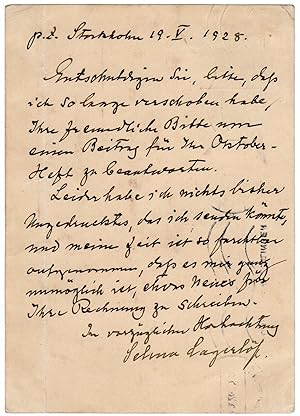 p.t. Stockholm 19.V. 1928.
Entschuldigen Sie, bitte, dass
ich so lange verschoben habe,
Ihre freundliche Bitte um
einen Beitrag für Ihr Oktober-
Heft zu beantworten.
Leider habe ich nichts bisher
Ungedrucktes, das ich senden könnte,
und meine Zeit ist so furchtbar
aufgenommen, dass es mir ganz
unmöglich ist, etwas Neues für
Ihre Rechnung zu schreiben.
In vorzüglicher Hochachtung
Selma Lagerlöf.